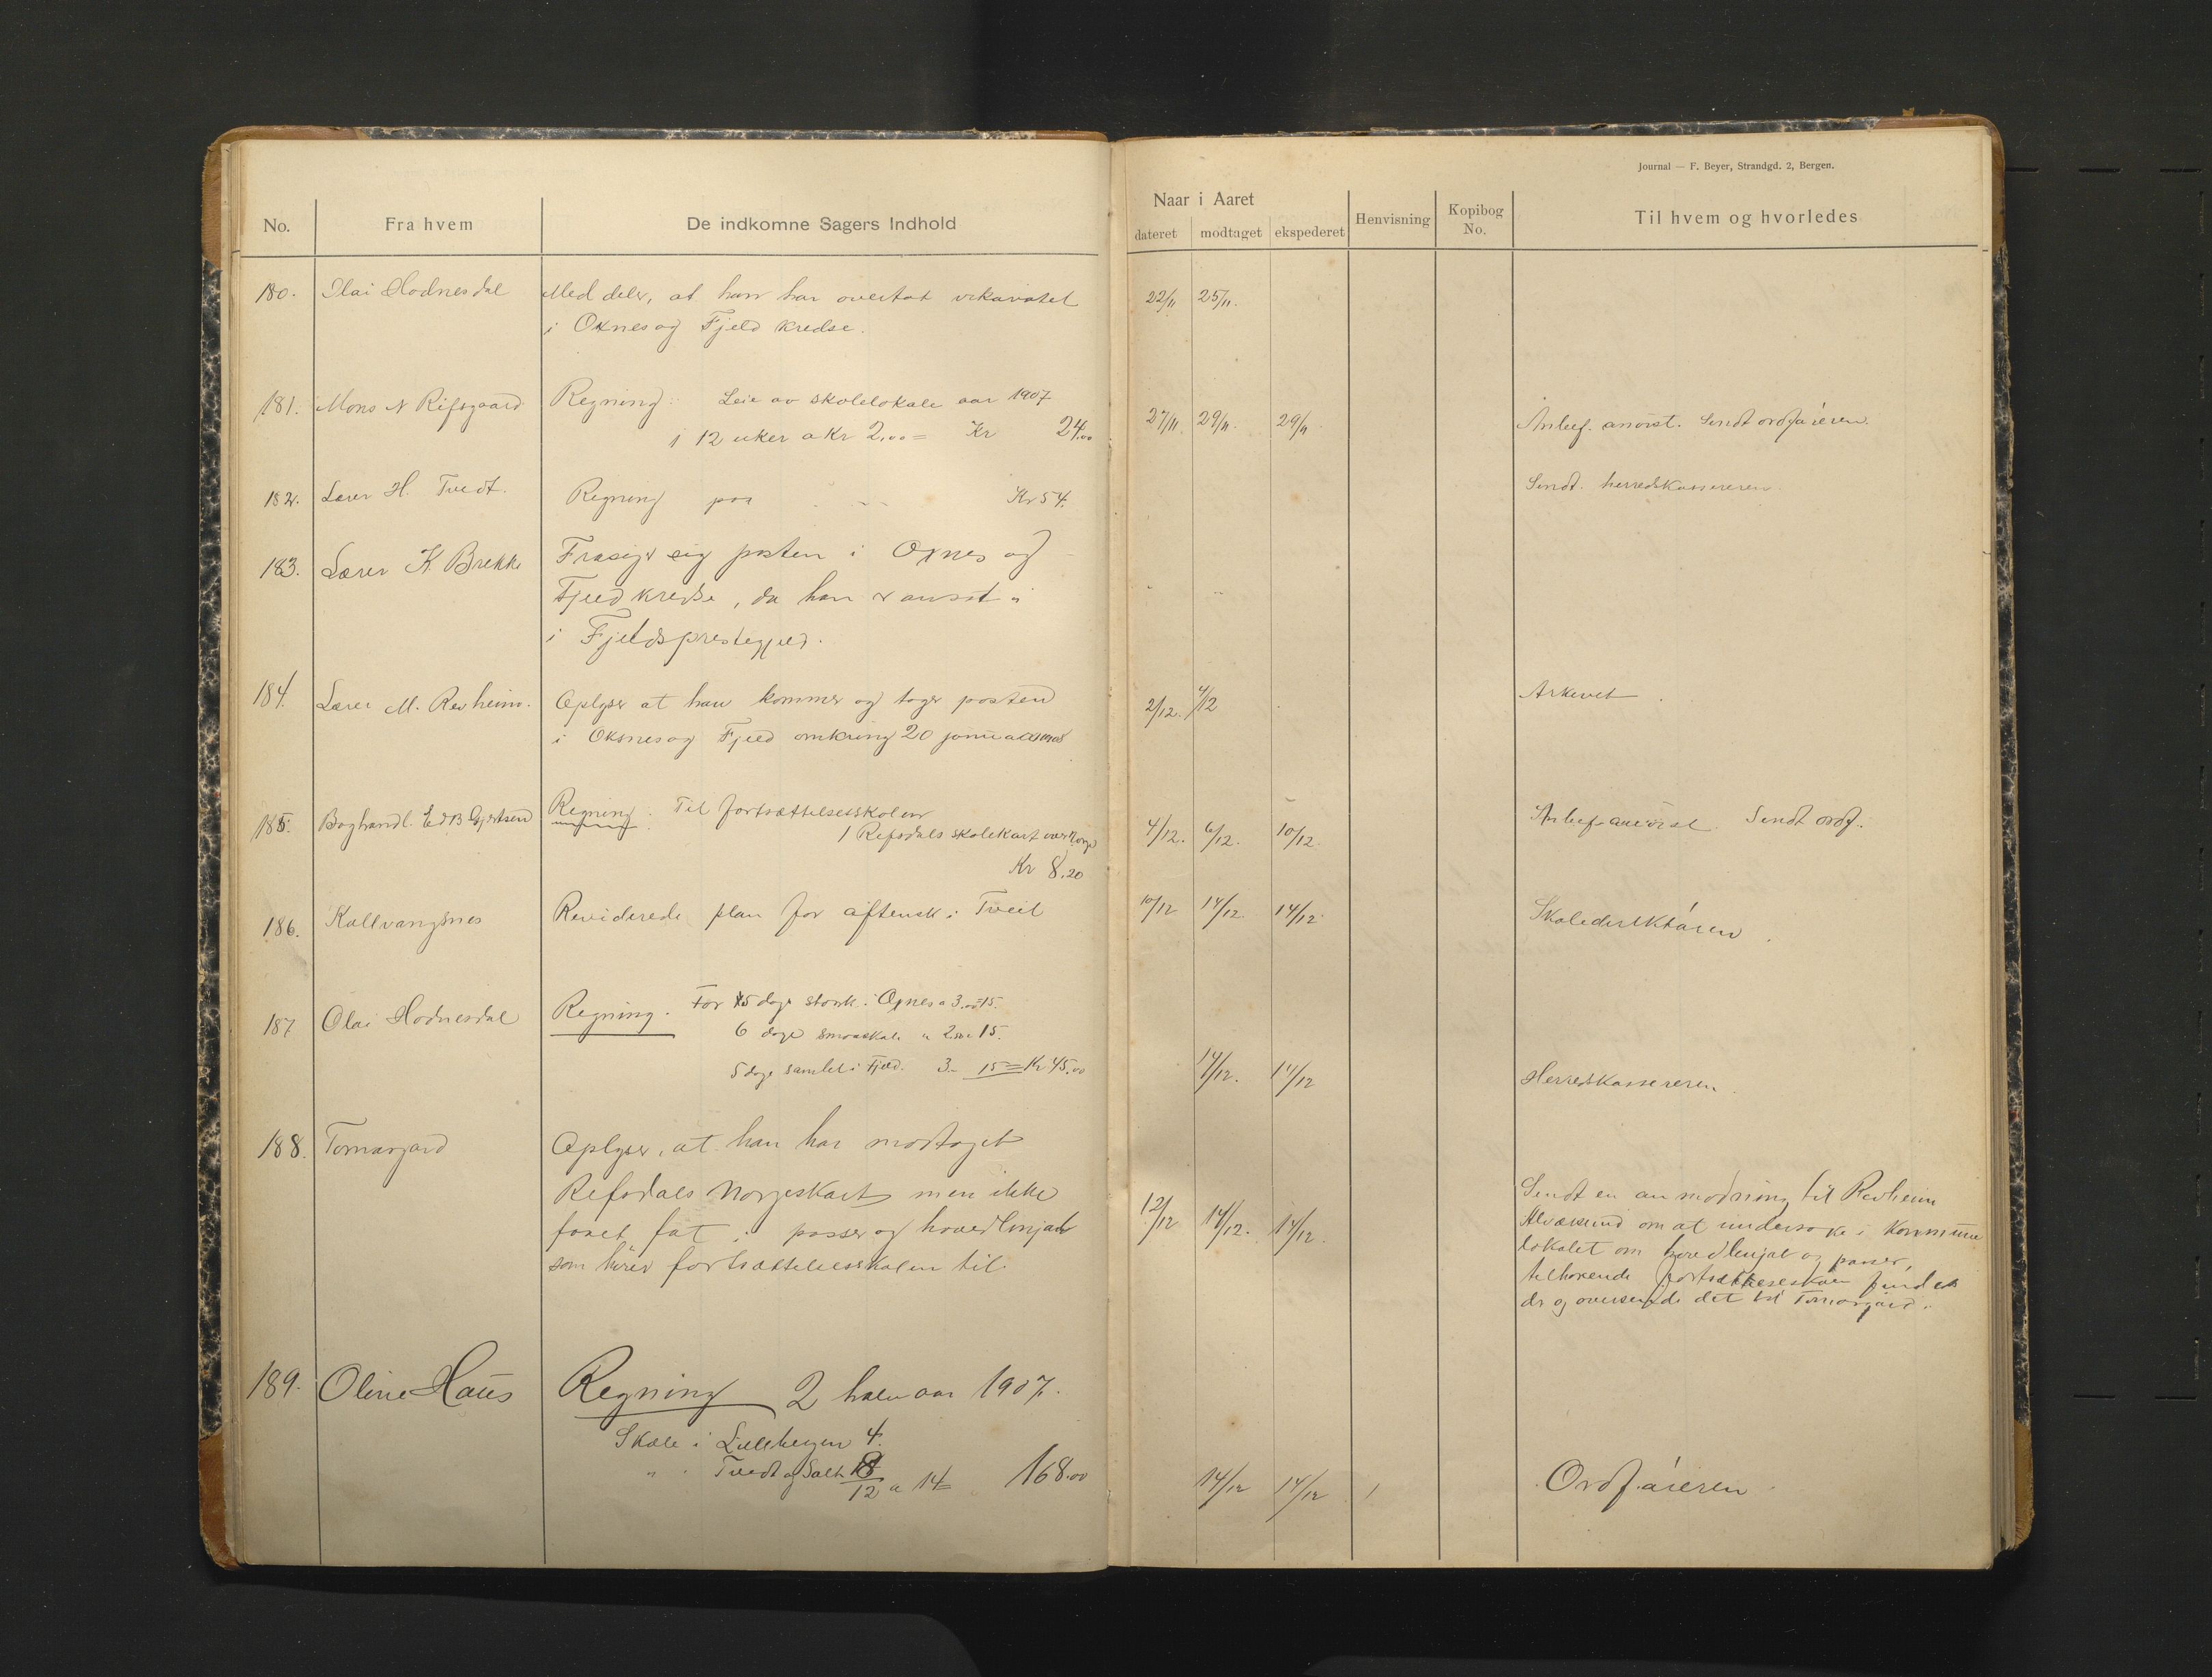 Journal — F. Beyer, Strandgd. 2, Bergen.
No. Fra hvem De indkomne Sagers Indhold Naar i Aaret dateret modtaget ekspederet Henvisning Kopibog No. Til hvem og hvorledes
180. Olai Hodnesdal Meddeler, at han har overtat vikariatet 22/11 25/11.
i Oxnes og Fjeld kredse.
181. Mons N Rifsgaard Regning: Leie av skolelokale aar 1907 27/11. 29/11. 29/11 Anbef. anvist. Sendt ordføreren.
i 12 uker a Kr 2.00 = Kr 24.00
182. Lærer H. Tvedt. Regning paa Kr 54. Sendt herredskassereren
183. Lærer K. Brekke Frasiger sig posten i Oxnes og
Fjeld kredse, da han er ansat i
i Fjelds prestegjeld.
184. Lærer M. Revheim. Oplyser at han kommer og tager posten 2/12. 4/12 Arkivet
i Oksnes og Fjeld omkring 20 januar 1908
185. Boghandl. Ed B Gjertsen Regning: Til fortsættelsesskolen 4/12. 6/12. 10/12. Anbef. anvist. Sendt ordf.
1 Refsdals skolekart over Norge
Kr 8.20
186. Kallvangsnes Reviderede plan for aftensk i Tveit 10/12 14/12. 14/12. Skoledirektøren.
187 Olai Hodnesdal Regning. For 5 dage stork. i Oxnes a 3.00 = 15.
6 dage smaaskole a 2.50 = 15.
5 dage samlet i Fjeld. 3- 15 = Kr 45.00 14/12. 14/12 Herredskassereren.
188. Tornargard Oplyser, at han har modtaget
Refsdals Norgeskart men ikke
faaet fat i passer og hovedlinjal
som hører fortsættelsesskolen til. 12/12 14/12. 14/12.
Sendt en anmodning til Revheim
Alvæsund om at undersøke i Kommune
lokalet om hovedlinjal og passer,
tilhørende fortsættelsesskolen findes
der og oversende det til Tornargard.
189. Oline Haus Regning 2 halvaar 1907.
Skole i Lillebergen 4.
" " Tvedt og Salt 8
12 a 14 = 168.00 14/12 14/12 Ordføreren.